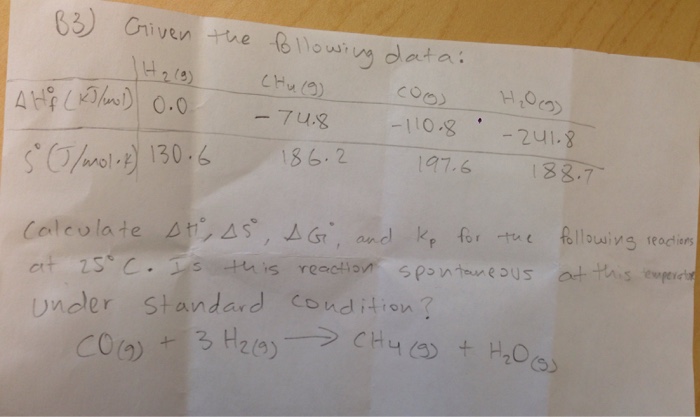 B3) Given the following data:
H2(g) CH4(g) CO(g) H2O(g)
ΔH°f (KJ/mol) 0.0 -74.8 -110.8 -241.8
S° (J/mol.K) 130.6 186.2 197.6 188.7
Calculate ΔH°, ΔS°, ΔG°, and Kp for the following reactions
at 25°C. Is this reaction spontaneous at this temperature
under standard condition?
CO(g) + 3 H2(g) → CH4(g) + H2O(g)